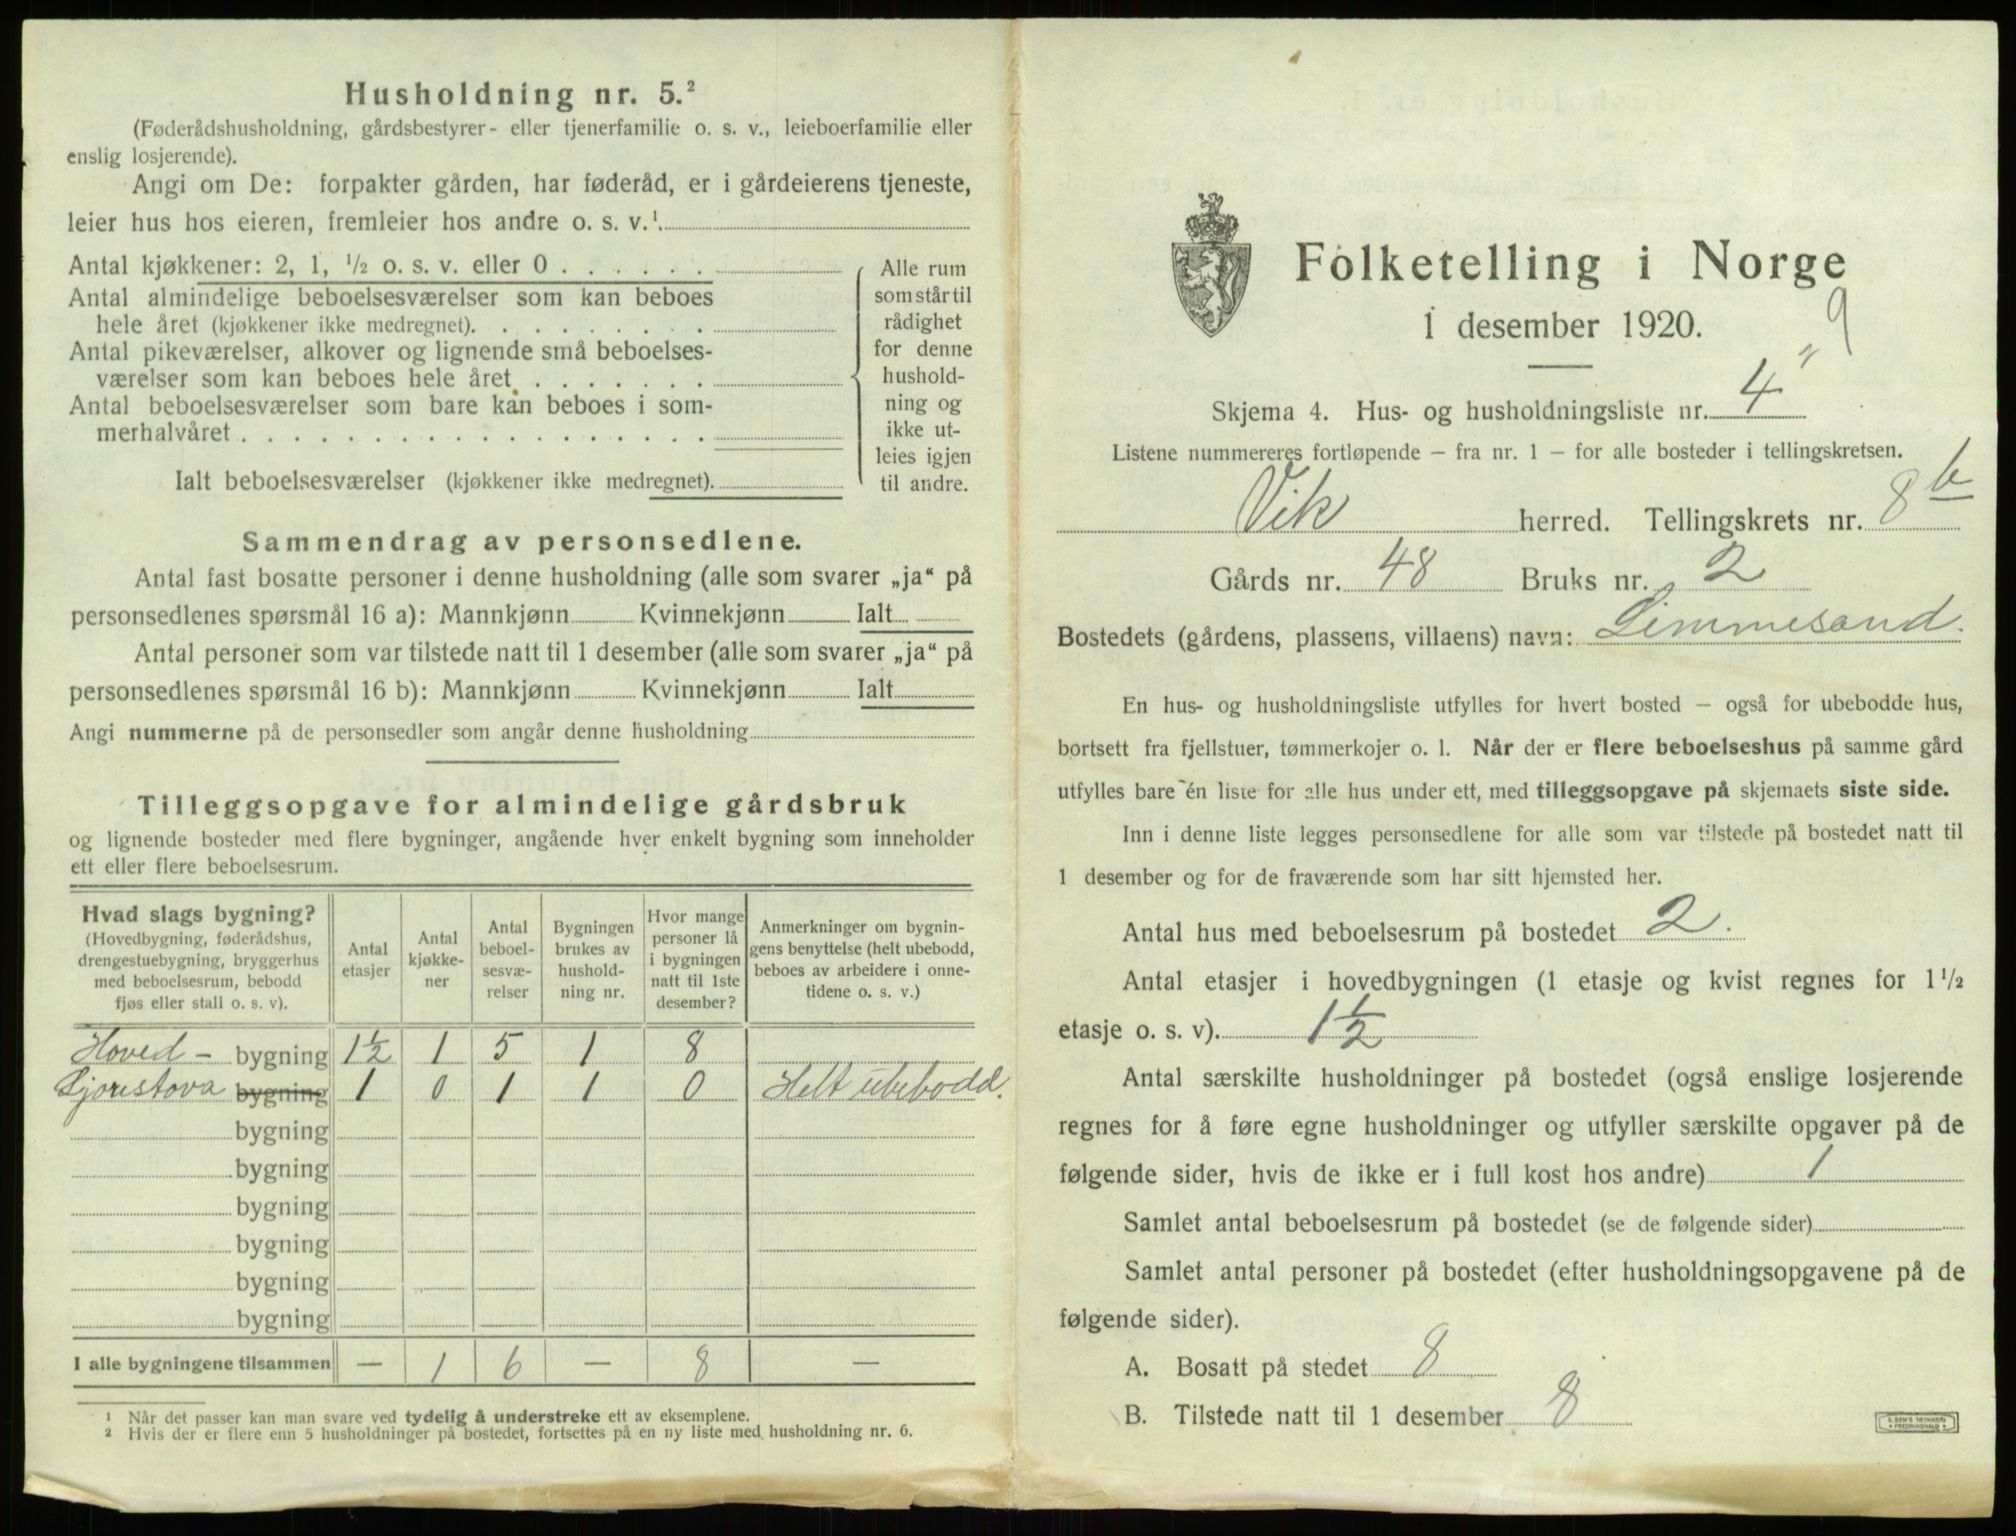 Husholdning nr. 5.²
(Føderådshusholdning, gårdsbestyrer- eller tjenerfamilie o. s. v., leieboerfamilie eller
enslig losjerende).
Angi om De: forpakter gården, har føderåd, er i gårdeierens tjeneste,
leier hus hos eieren, fremleier hos andre o. s. v.¹
Antal kjøkkener: 2, 1, ½ o. s. v. eller 0
Antal almindelige beboelsesværelser som kan beboes
hele året (kjøkkener ikke medregnet).
Antal pikeværelser, alkover og lignende små beboelses-
værelser som kan beboes hele året
Antal beboelsesværelser som bare kan beboes i som-
merhalvåret
Ialt beboelsesværelser (kjøkkener ikke medregnet).
Alle rum
som står til
rådighet
for denne
hushold-
ning og
ikke ut-
leies igjen
til andre.
Sammendrag av personsedlene.
Antal fast bosatte personer i denne husholdning (alle som svarer „ja“ på
personsedlenes spørsmål 16 a): Mannkjønn Kvinnekjønn Ialt
Antal personer som var tilstede natt til 1 desember (alle som svarer „ja“ på
personsedlenes spørsmål 16 b): Mannkjønn Kvinnekjønn Ialt
Angi nummerne på de personsedler som angår denne husholdning
Tilleggsopgave for almindelige gårdsbruk
og lignende bosteder med flere bygninger, angående hver enkelt bygning som inneholder
ett eller flere beboelsesrum.
Hvad slags bygning?
(Hovedbygning, føderådshus,
drengestuebygning, bryggerhus
med beboelsesrum, bebodd
fjøs eller stall o. s. v).
Antal
etasjer
Antal
kjøkke-
ner
Antal
beboel-
sesvæ-
relser
Bygningen
brukes av
hushold-
ning nr.
Hvor mange
personer lå
i bygningen
natt til 1ste
desember?
Anmerkninger om bygnin-
gens benyttelse (helt ubebodd,
beboes av arbeidere i onne-
tidene o. s. v.)
Hoved - bygning 1½ 1 5 1 8
bygning 1 0 1 1 0 Helt ubebodd.
bygning
bygning
bygning
bygning
bygning
bygning
I alle bygningene tilsammen — 1 6 — 8 —
¹ Når det passer kan man svare ved tydelig å understreke ett av eksemplene.
² Hvis der er flere enn 5 husholdninger på bostedet, fortsettes på en ny liste med husholdning nr. 6.
Folketelling i Norge
1 desember 1920.
9
Skjema 4. Hus- og husholdningsliste nr. 4
Listene nummereres fortløpende – fra nr. 1 – for alle bosteder i tellingskretsen.
Vik herred. Tellingskrets nr. 8 b
Gårds nr. 48 Bruks nr. 2
Bostedets (gårdens, plassens, villaens) navn: Limmesand.
En hus- og husholdningsliste utfylles for hvert bosted – også for ubebodde hus,
bortsett fra fjellstuer, tømmerkojer o. l. Når der er flere beboelseshus på samme gård
utfylles bare én liste for alle hus under ett, med tilleggsopgave på skjemaets siste side.
Inn i denne liste legges personsedlene for alle som var tilstede på bostedet natt til
1 desember og for de fraværende som har sitt hjemsted her.
Antal hus med beboelsesrum på bostedet 2.
Antal etasjer i hovedbygningen (1 etasje og kvist regnes for 1 ½
etasje o. s. v). 1½
Antal særskilte husholdninger på bostedet (også enslige losjerende
regnes for å føre egne husholdninger og utfyller særskilte opgaver på de
følgende sider, hvis de ikke er i full kost hos andre) 1
Samlet antal beboelsesrum på bostedet (se de følgende sider)
Samlet antal personer på bostedet (efter husholdningsopgavene på de
følgende sider).
A. Bosatt på stedet 8
B. Tilstede natt til 1 desember 8
E. SEM'S TRYKKERI
FREDRIKSHALD